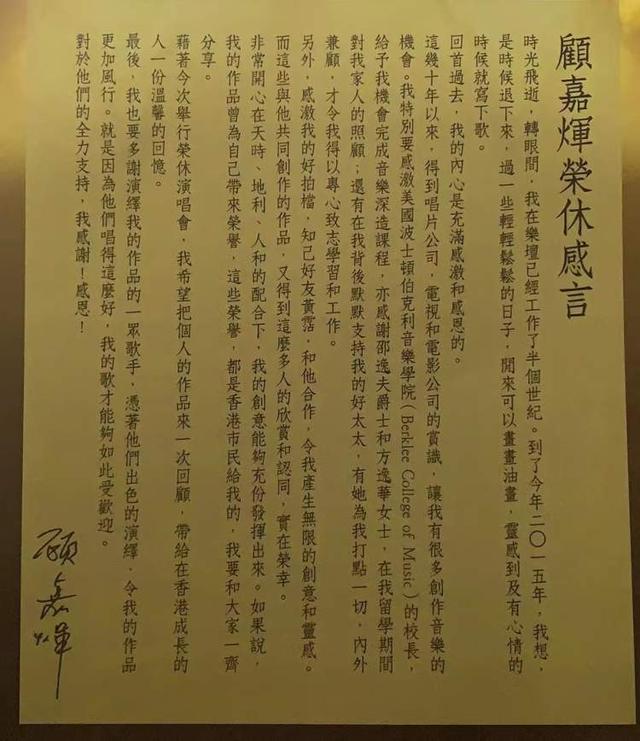 顧嘉煇榮休感言
時光飛逝，轉眼間，我在樂壇已經工作了半個世紀。到了今年二〇一五年，我想，
是時候退下來，過一些輕輕鬆鬆的日子，閒來可以畫畫油畫，靈感到及有心情的
時候就寫下歌。
回首過去，我的內心是充滿感激和感恩的。
這幾十年以來，得到唱片公司，電視和電影公司的賞識，讓我有很多創作音樂的
機會。我特別要感激美國波士頓伯克利音樂學院(Berklee College of Music)的校長，
給予我機會完成音樂深造課程，亦感謝邵逸夫爵士和方逸華女士，在我留學期間
對我家人的照顧；還有在我背後默默支持我的好太太，有她為我打點一切，內外
兼顧，才令我得以專心致志學習和工作。
另外，感激我的好拍檔，知己好友黃霑，和他合作，令我產生無限的創意和靈感。
而這些與他共同創作的作品，又得到這麼多人的欣賞和認同，實在榮幸。
非常開心在天時、地利、人和的配合下，我的創意能夠充份發揮出來。如果說，
我的作品曾為自己帶來榮譽，這些榮譽，都是香港市民給我的，我要和大家一齊
分享。
藉著今次舉行榮休演唱會，我希望把個人的作品來一次回顧，帶給在香港成長的
人一份溫馨的回憶。
最後，我也要多謝演繹我的作品的一眾歌手，憑著他們出色的演繹，令我的作品
更加風行。就是因為他們唱得這麼好，我的歌才能夠如此受歡迎。
對於他們的全力支持，我感謝！感恩！
顧嘉煇